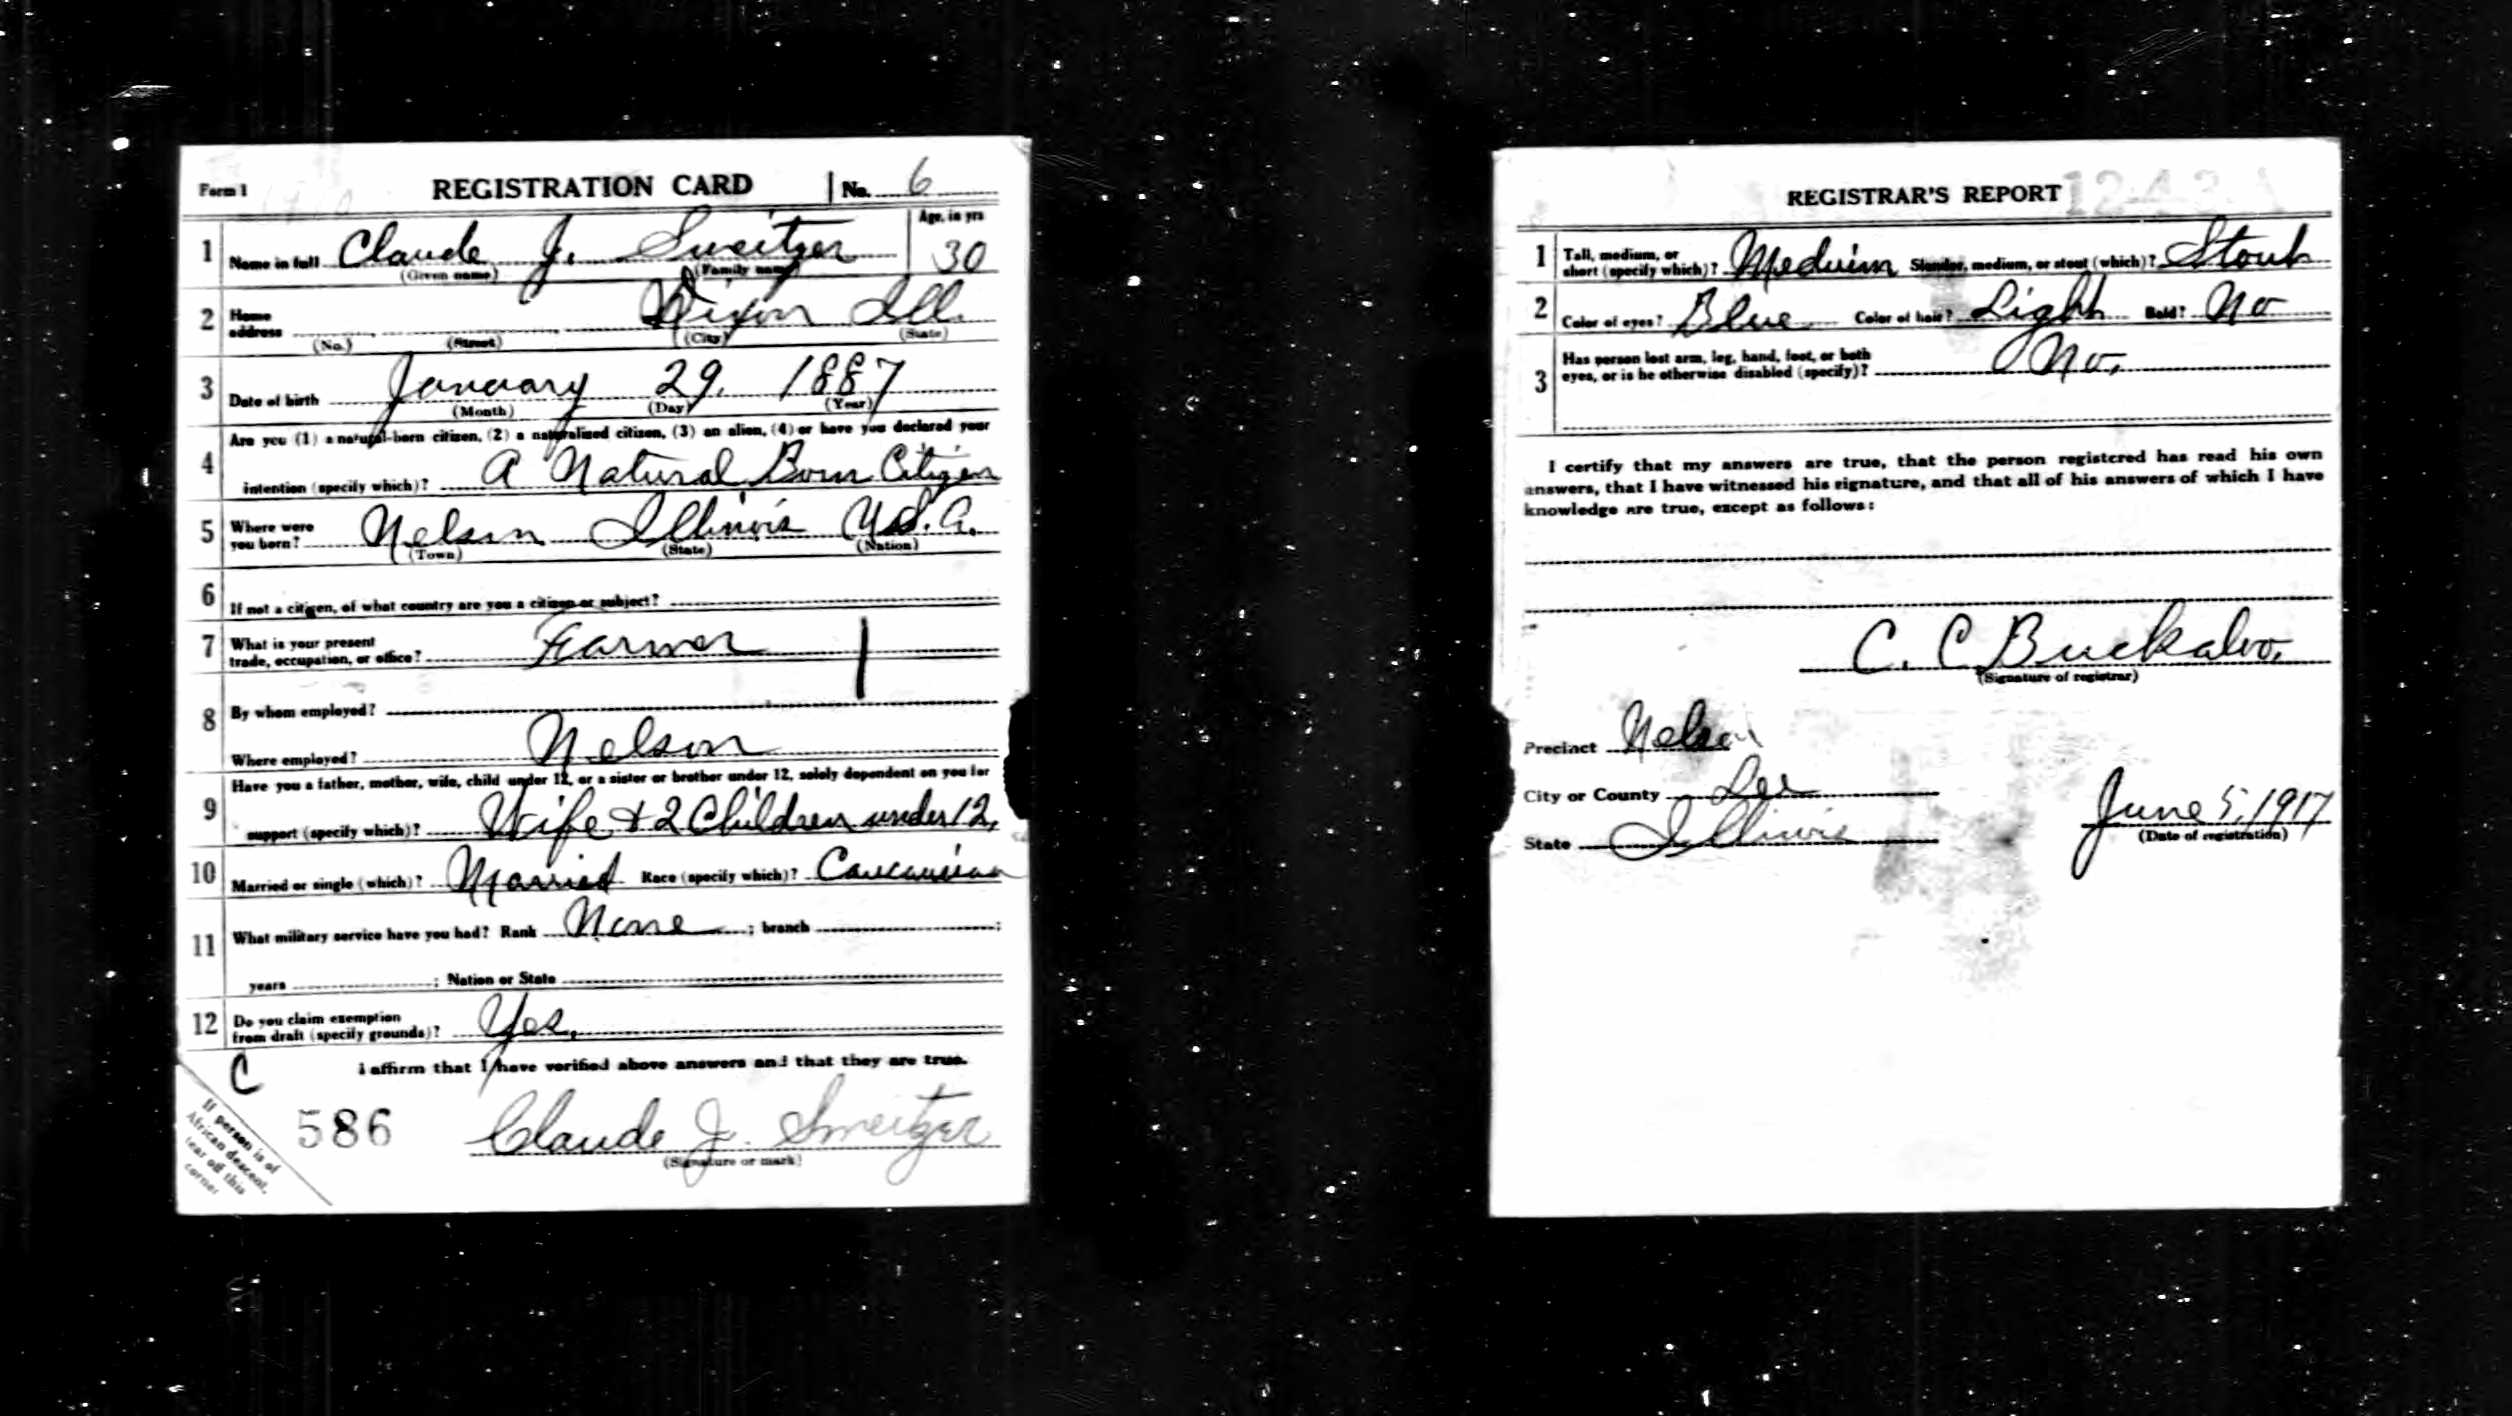 Form 1 REGISTRATION CARD No. 6
1 Name in full Claude J. Sweitzer Age, in yrs 30
(Given name) (Family name)
2 Home address Dixon Ill.
(No.) (Street) (City) (State)
3 Date of birth January 29, 1887
(Month) (Day) (Year)
Are you (1) a natural-born citizen, (2) a naturalized citizen, (3) an alien, (4) or have you declared your
4 intention (specify which)? A Natural Born Citizen
5 Where were you born? Nelson Illinois U.S.A.
(Town) (State) (Nation)
6 If not a citizen, of what country are you a citizen or subject?
7 What is your present
trade, occupation, or office? Farmer
8 By whom employed?
Where employed? Nelson
Have you a father, mother, wife, child under 12, or a sister or brother under 12, solely dependent on you for
9 support (specify which)? Wife & 2 Children under 12,
10 Married or single (which)? Married Race (specify which)? Caucasian
11 What military service have you had? Rank None ; branch ;
years ; Nation or State
12 Do you claim exemption
from draft (specify grounds)? Yes.
C I affirm that I have verified above answers and that they are true.
586 Claude J. Sweitzer
(Signature or mark)
If person is of
African descent,
tear off this
corner
REGISTRAR'S REPORT
1 Tall, medium, or
short (specify which)? Meduim Slender, medium, or stout (which)? Stout
2 Color of eyes? Blue Color of hair? Light Bald? No
3 Has person lost arm, leg, hand, foot, or both
eyes, or is he otherwise disabled (specify)? No.
I certify that my answers are true, that the person registered has read his own
answers, that I have witnessed his signature, and that all of his answers of which I have
knowledge are true, except as follows:
C. C Buckaloo.
(Signature of registrar)
Precinct Nelson
City or County Lee
State Illinois June 5, 1917
(Date of registration)